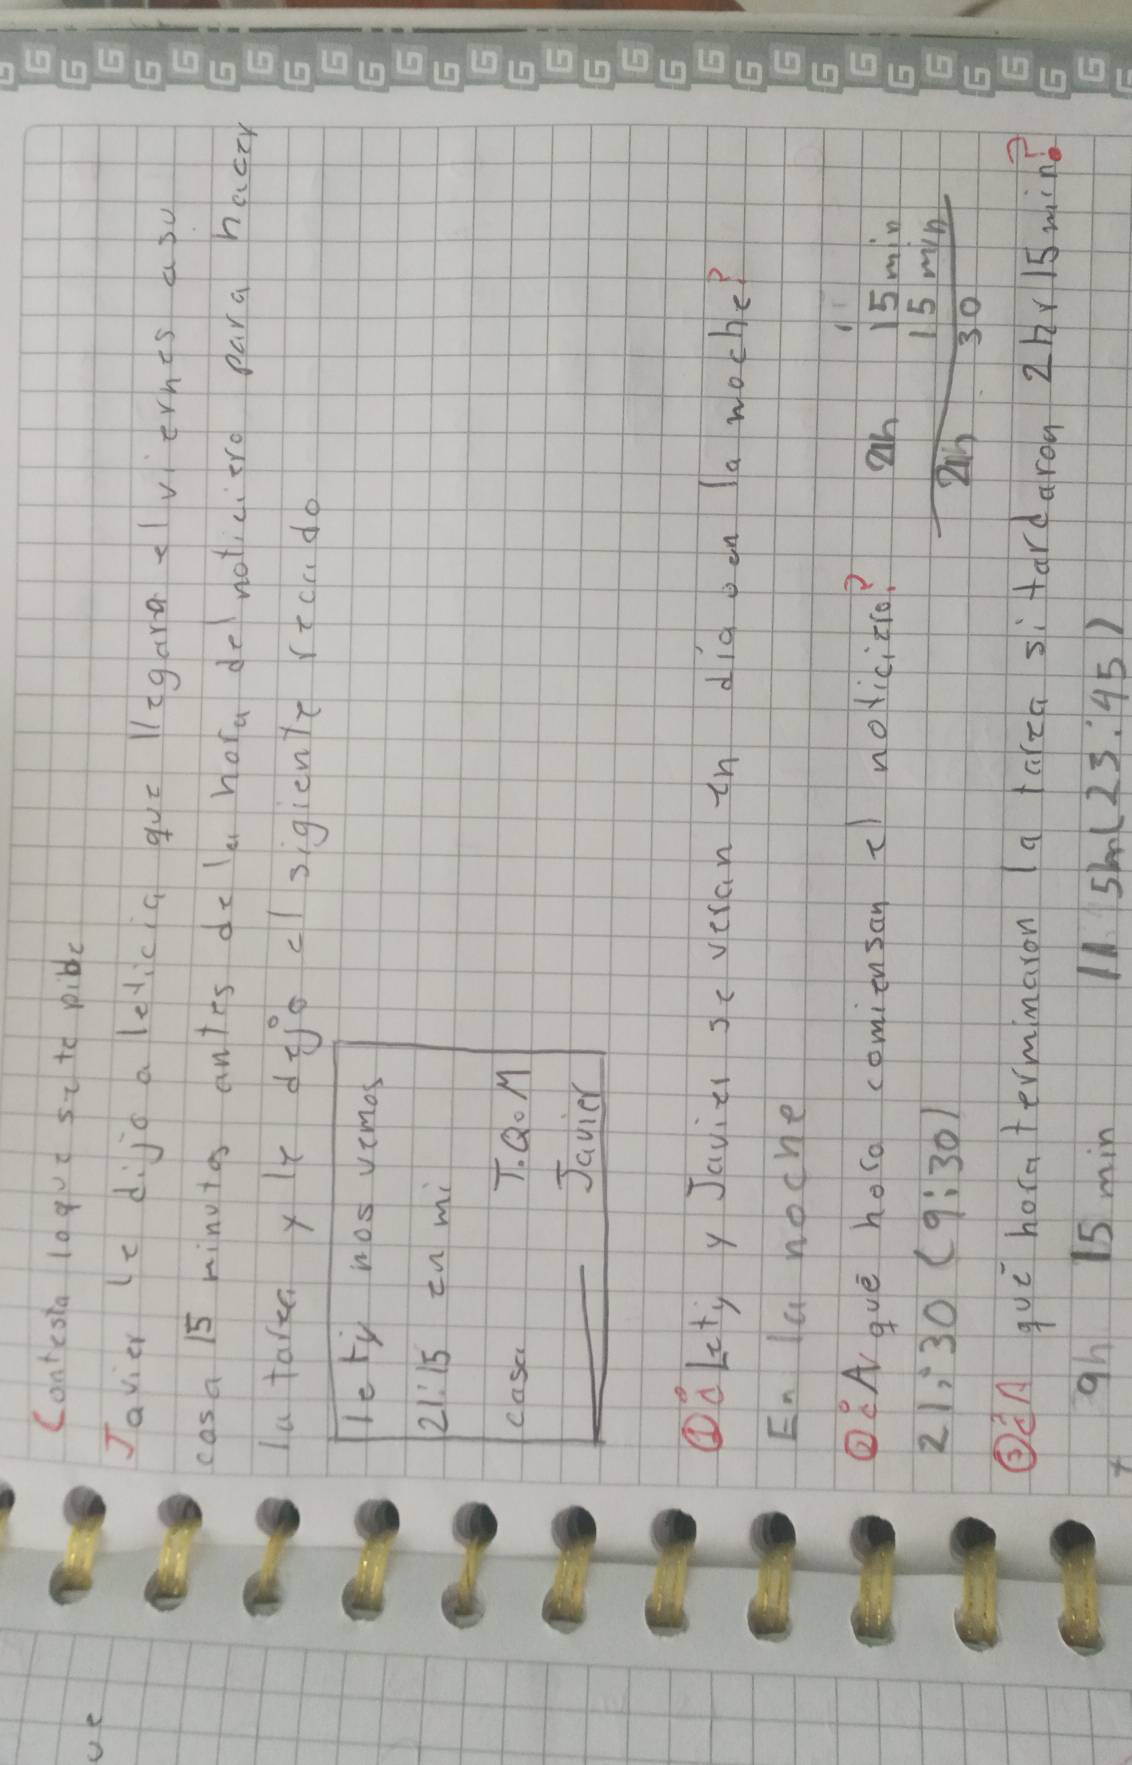 Contesta loque se te pide
Javier le dijo a leticia que llegara el viernes a su
casa 15 minutos antes de la hora del noticiero para hacer
la tarea y le dejo el sigiente recado
lety nos vemos
21:15 en mi
casa T.Q.M
Javier
① ¿Lety y Javier se veran en día o en la noche?
En la noche
② ¿A qué hora comiensan el noticiero?
21:30 (9:30)
21h 15 min
15 min
21h 30
③ ¿A qué hora terminaron la tarea si tardaron 2hr 15min?
9h 15 min (23:45)
ue